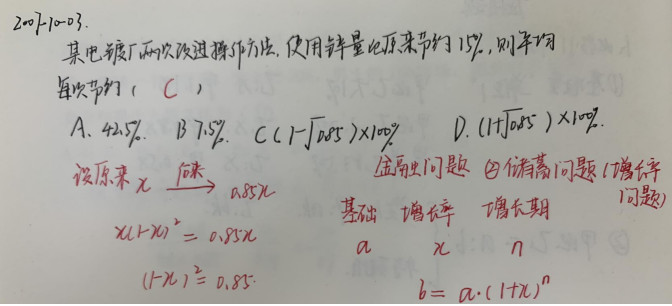 2007-10-03.
某电镀厂两次改进操作方法,使用锌量比原来节约15%,则平均
每次节约( C )
A. 42.5%. B 7.5%. C (1-√0.85)×100% D. (1+√0.85)×100%.
设原来 x 后来→ 0.85x
金融问题 ②储蓄问题(增长率问题)
基础 增长率 增长期
x(1-x)² = 0.85x
a x n
(1-x)² = 0.85.
b = a·(1+x)ⁿ